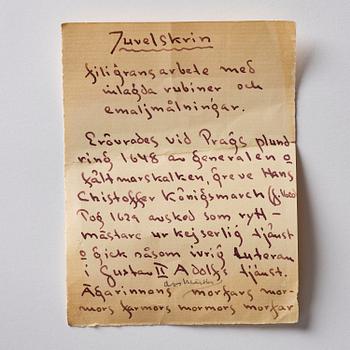 Juvelskrin
filigransarbete med
inlagda rubiner och
emaljmålningar.
Erövrades vid Prags plund
ring 1648 av generalen o
fältmarskalken, greve Hans
Chistoffer Königsmarch
Tog 1629 avsked som rytt-
mästare ur kejserlig tjänst
o gick såsom ivrig Luteran
i Gustav II Adolfs tjänst.
Ägarinnans morfars mor-
mors farmors mormors morfar